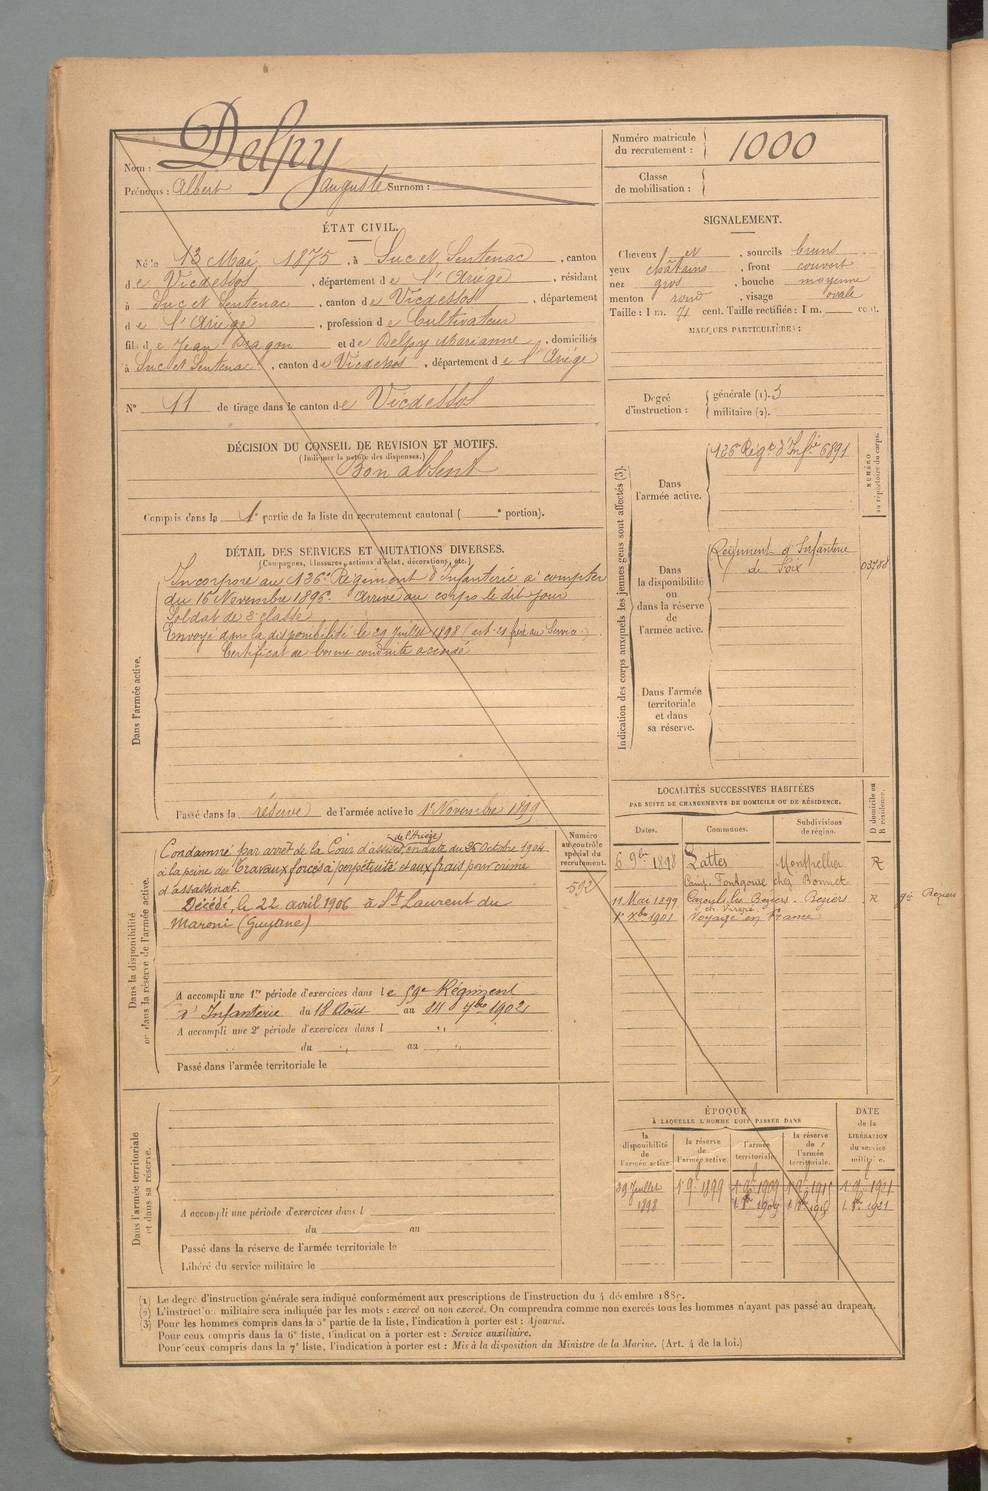 Nom : Delpy
Prénoms : Albert Auguste Surnom :
Numéro matricule du recrutement : 1000
Classe de mobilisation :
ÉTAT CIVIL.
Né le 13 Mai 1875, à Suc et Sentenac, canton
de Vicdessos, département de l'Ariège, résidant
à Suc et Sentenac, canton de Vicdessos, département
de l'Ariège, profession de Cultivateur
fils de Jean Dragon et de Delpy Marianne, domiciliés
à Suc et Sentenac, canton de Vicdessos, département de l'Ariège
N° 11 de tirage dans le canton de Vicdessos
SIGNALEMENT.
Cheveux et, sourcils bruns
yeux châtains, front couvert
nez gros, bouche moyenne
menton rond, visage ovale
Taille : 1 m. 71 cent. Taille rectifiée : 1 m. cent.
MARQUES PARTICULIÈRES :
Degré d'instruction :
générale (1). 3
militaire (2).
DÉCISION DU CONSEIL DE REVISION ET MOTIFS.
(Indiquer la nature des dispenses.)
Bon absent
Compris dans la 1e partie de la liste du recrutement cantonal ( e portion).
DÉTAIL DES SERVICES ET MUTATIONS DIVERSES.
(Campagnes, blessures, actions d'éclat, décorations, etc.)
Dans l'armée active.
Incorporé au 136e Régiment d'Infanterie à compter
du 16 Novembre 1896. Arrivé au corps le dit jour
Soldat de 2e classe
Envoyé dans la disponibilité le 29 Juillet 1898
Certificat de bonne conduite accordé
Passé dans la réserve de l'armée active le 1er Novembre 1899
Indication des corps auxquels les jeunes gens sont affectés (3).
NUMÉRO au répertoire du corps.
Dans l'armée active.
136e Régt d'Infie 6891
Dans la disponibilité ou dans la réserve de l'armée active.
Régiment d'Infanterie
de Foix
03788
Dans l'armée territoriale et dans sa réserve.
Dans la disponibilité ou dans la réserve de l'armée active.
Numéro au contrôle spécial du recrutement.
592
Condamné par arrêt de la Cour d'assises (de l'Ariège) en date du 26 Octobre 1904
à la peine des Travaux forcés à perpétuité et aux frais pour crime
d'assassinat.
Décédé, le 22 avril 1906 à St Laurent du
Maroni (Guyane)
A accompli une 1re période d'exercices dans le 59e Régiment
d'Infanterie du 18 Août au 14 7bre 1902
A accompli une 2e période d'exercices dans l "
du " au "
Passé dans l'armée territoriale le
LOCALITÉS SUCCESSIVES HABITÉES
PAR SUITE DE CHANGEMENTS DE DOMICILE OU DE RÉSIDENCE.
Dates. Communes. Subdivisions de région. D domicile ou R résidence.
6 9bre 1898 Lattes Montpellier R
Camp. Fontgouse chez Bonnet
11 Mai 1899 Cazouls les Beziers Beziers R Beziers
1er Xbre 1901 Voyage en France
ÉPOQUE
À LAQUELLE L'HOMME DOIT PASSER DANS
DATE de la LIBÉRATION du service militaire.
la disponibilité de l'armée active.
la réserve de l'armée active.
l'armée territoriale.
la réserve de l'armée territoriale.
29 Juillet 1898 1er 9bre 1899 1er 9bre 1909 1er 9bre 1915 1er 9bre 1921
1. 8bre 1909 1. 8bre 1915 1. 8bre 1921
Dans l'armée territoriale et dans sa réserve.
A accompli une période d'exercices dans l
du au
Passé dans la réserve de l'armée territoriale le
Libéré du service militaire le
(1) Le degré d'instruction générale sera indiqué conformément aux prescriptions de l'instruction du 4 décembre 1889.
(2) L'instruction militaire sera indiquée par les mots : exercé ou non exercé. On comprendra comme non exercés tous les hommes n'ayant pas passé au drapeau.
(3) Pour les hommes compris dans la 5e partie de la liste, l'indication à porter est : Ajourné.
Pour ceux compris dans la 6e liste, l'indication à porter est : Service auxiliaire.
Pour ceux compris dans la 7e liste, l'indication à porter est : Mis à la disposition du Ministre de la Marine. (Art. 4 de la loi.)